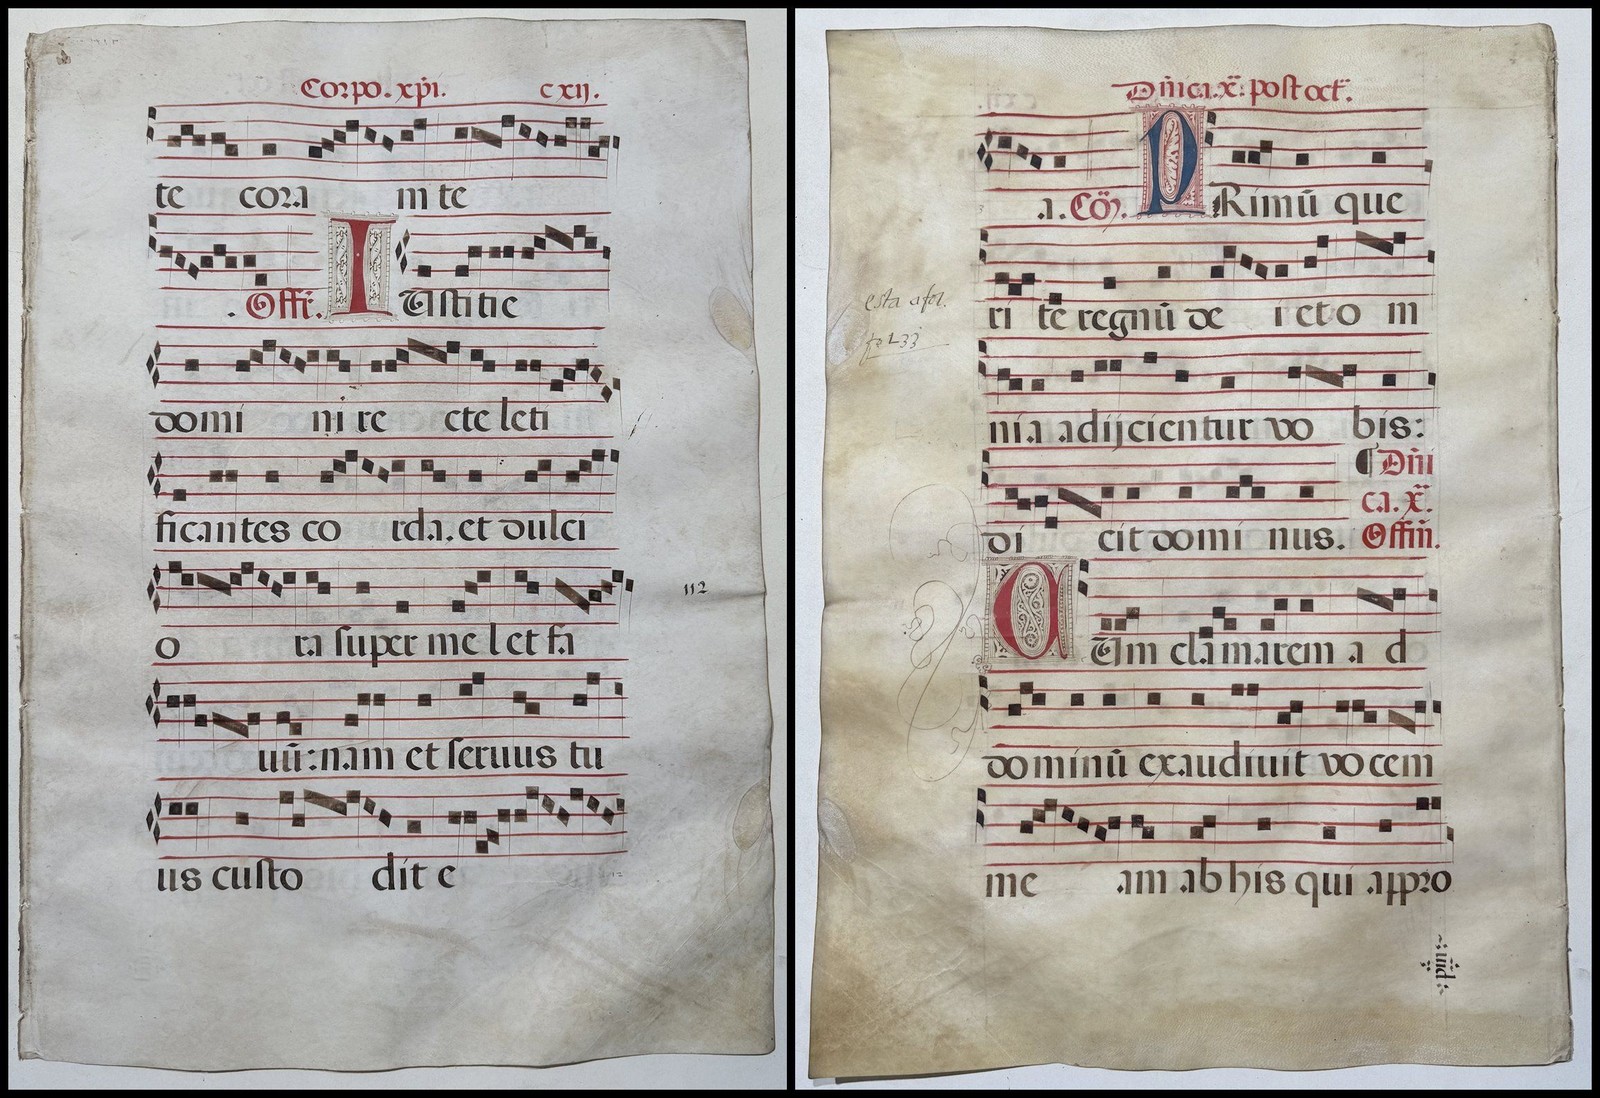 Corpo. xp̄i. cxij.
te cora m te
. Offr̄. I Usticie
domi ni re cte leti
ficantes co rda. et dulci
o ra super me l et fa
uū: nam et seruus tu
112
us custo dit e
Dn̄ica. x̄. post oct̄.
a. Cōj. P Rimū que
ri te regnū de i et o m
esta a fol.
fo 233
nia adijcientur vo bis:
¶ Dn̄i
ca. x̄.
di cit domi nus. Offm̄.
C Um clamarem a d
dominū exaudiuit vocem
me am ab his qui appro
pin